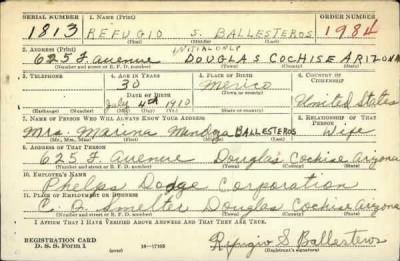 SERIAL NUMBER 1. NAME (Print) ORDER NUMBER
1813 REFUGIO S. BALLESTEROS 1984
INITIAL ONLY
2. ADDRESS (Print)
625 F. avenue DOUGLAS COCHISE ARIZONA
(Number and street or R. F. D. number) (Town) (County) (State)
3. TELEPHONE 4. AGE IN YEARS 5. PLACE OF BIRTH 6. COUNTRY OF CITIZENSHIP
30 Mexico
DATE OF BIRTH (Town or county)
July 4th 1910 United States
(Exchange) (Number) (Mo.) (Day) (Yr.) (State or country)
7. NAME OF PERSON WHO WILL ALWAYS KNOW YOUR ADDRESS 8. RELATIONSHIP OF THAT PERSON
Mrs. Marina Mendoza BALLESTEROS Wife
(Mr., Mrs., Miss) (First) (Middle) (Last)
9. ADDRESS OF THAT PERSON
625 F. Avenue Douglas Cochise Arizona
(Number and street or R. F. D. number) (Town) (County) (State)
10. EMPLOYER'S NAME
Phelps Dodge Corporation
11. PLACE OF EMPLOYMENT OR BUSINESS
C. Q. Smelter Douglas Cochise Arizona
(Number and street or R. F. D. number) (Town) (County) (State)
I AFFIRM THAT I HAVE VERIFIED ABOVE ANSWERS AND THAT THEY ARE TRUE.
REGISTRATION CARD
D. S. S. Form 1 (over) 16—17105
Refugio S. Ballesteros
(Registrant's signature)